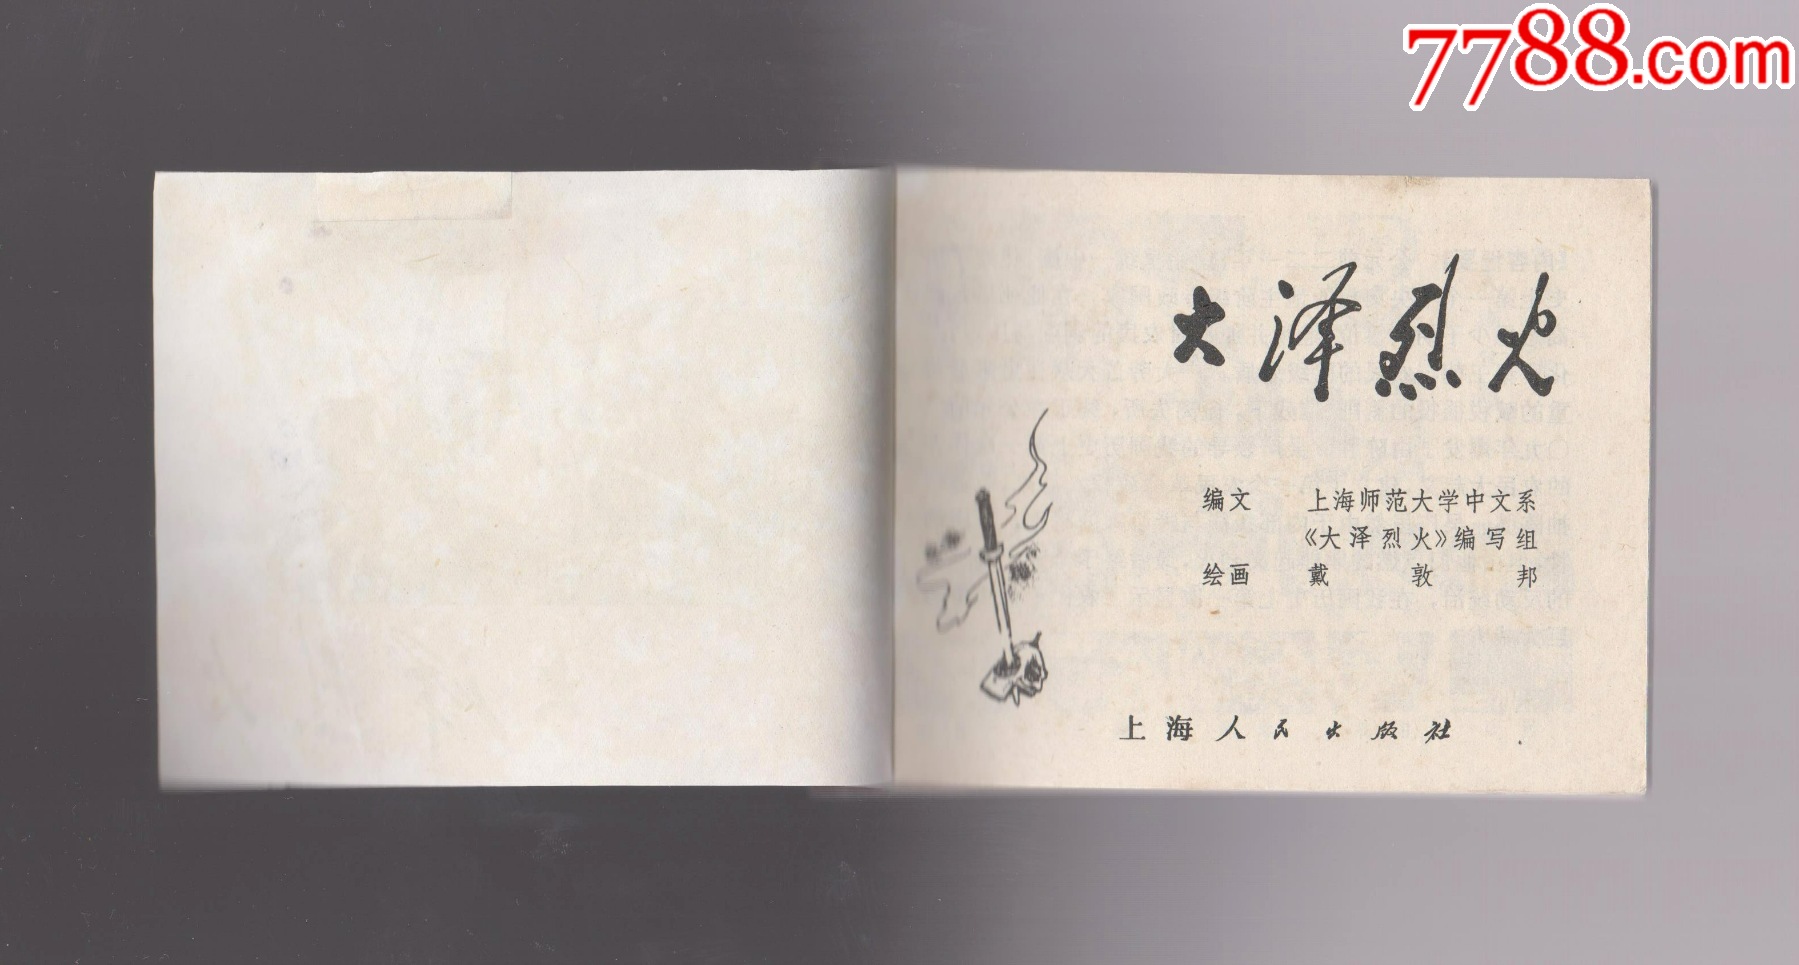 7788.com
大泽烈火
编文 上海师范大学中文系
《大泽烈火》编写组
绘画 戴敦邦
上海人民出版社